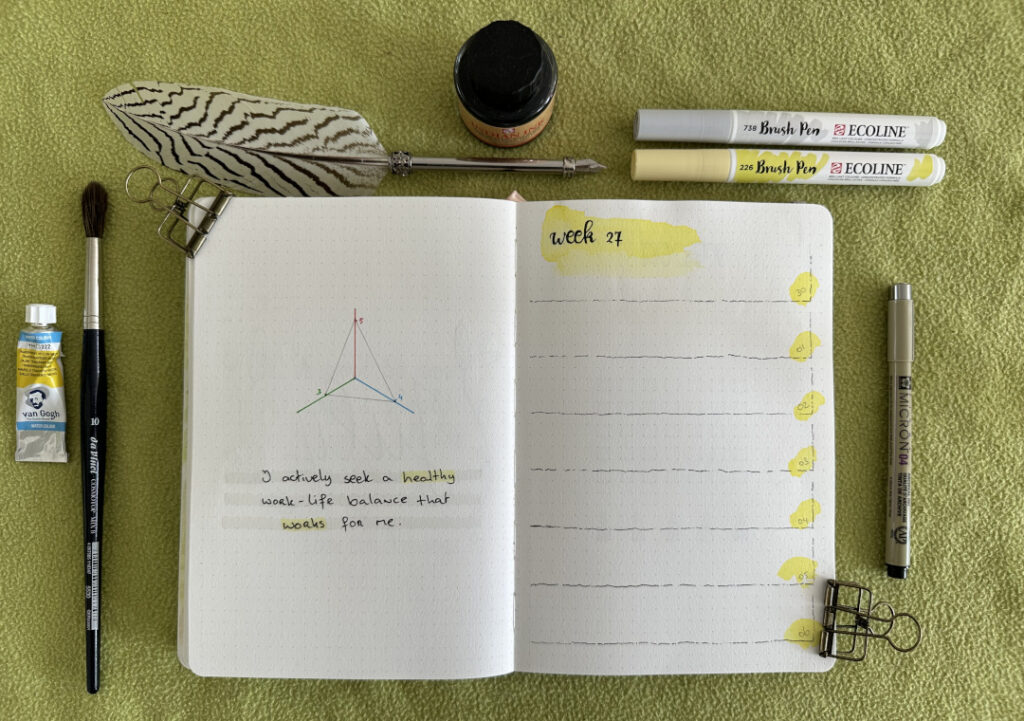 738 Brush Pen ECOLINE
226 Brush Pen ECOLINE
week 27
30
01
02
03
04
05
06
5
3
4
I actively seek a healthy
work-life balance that
works for me.
van Gogh
WATER COLOUR
10
da Vinci
MICRON 04